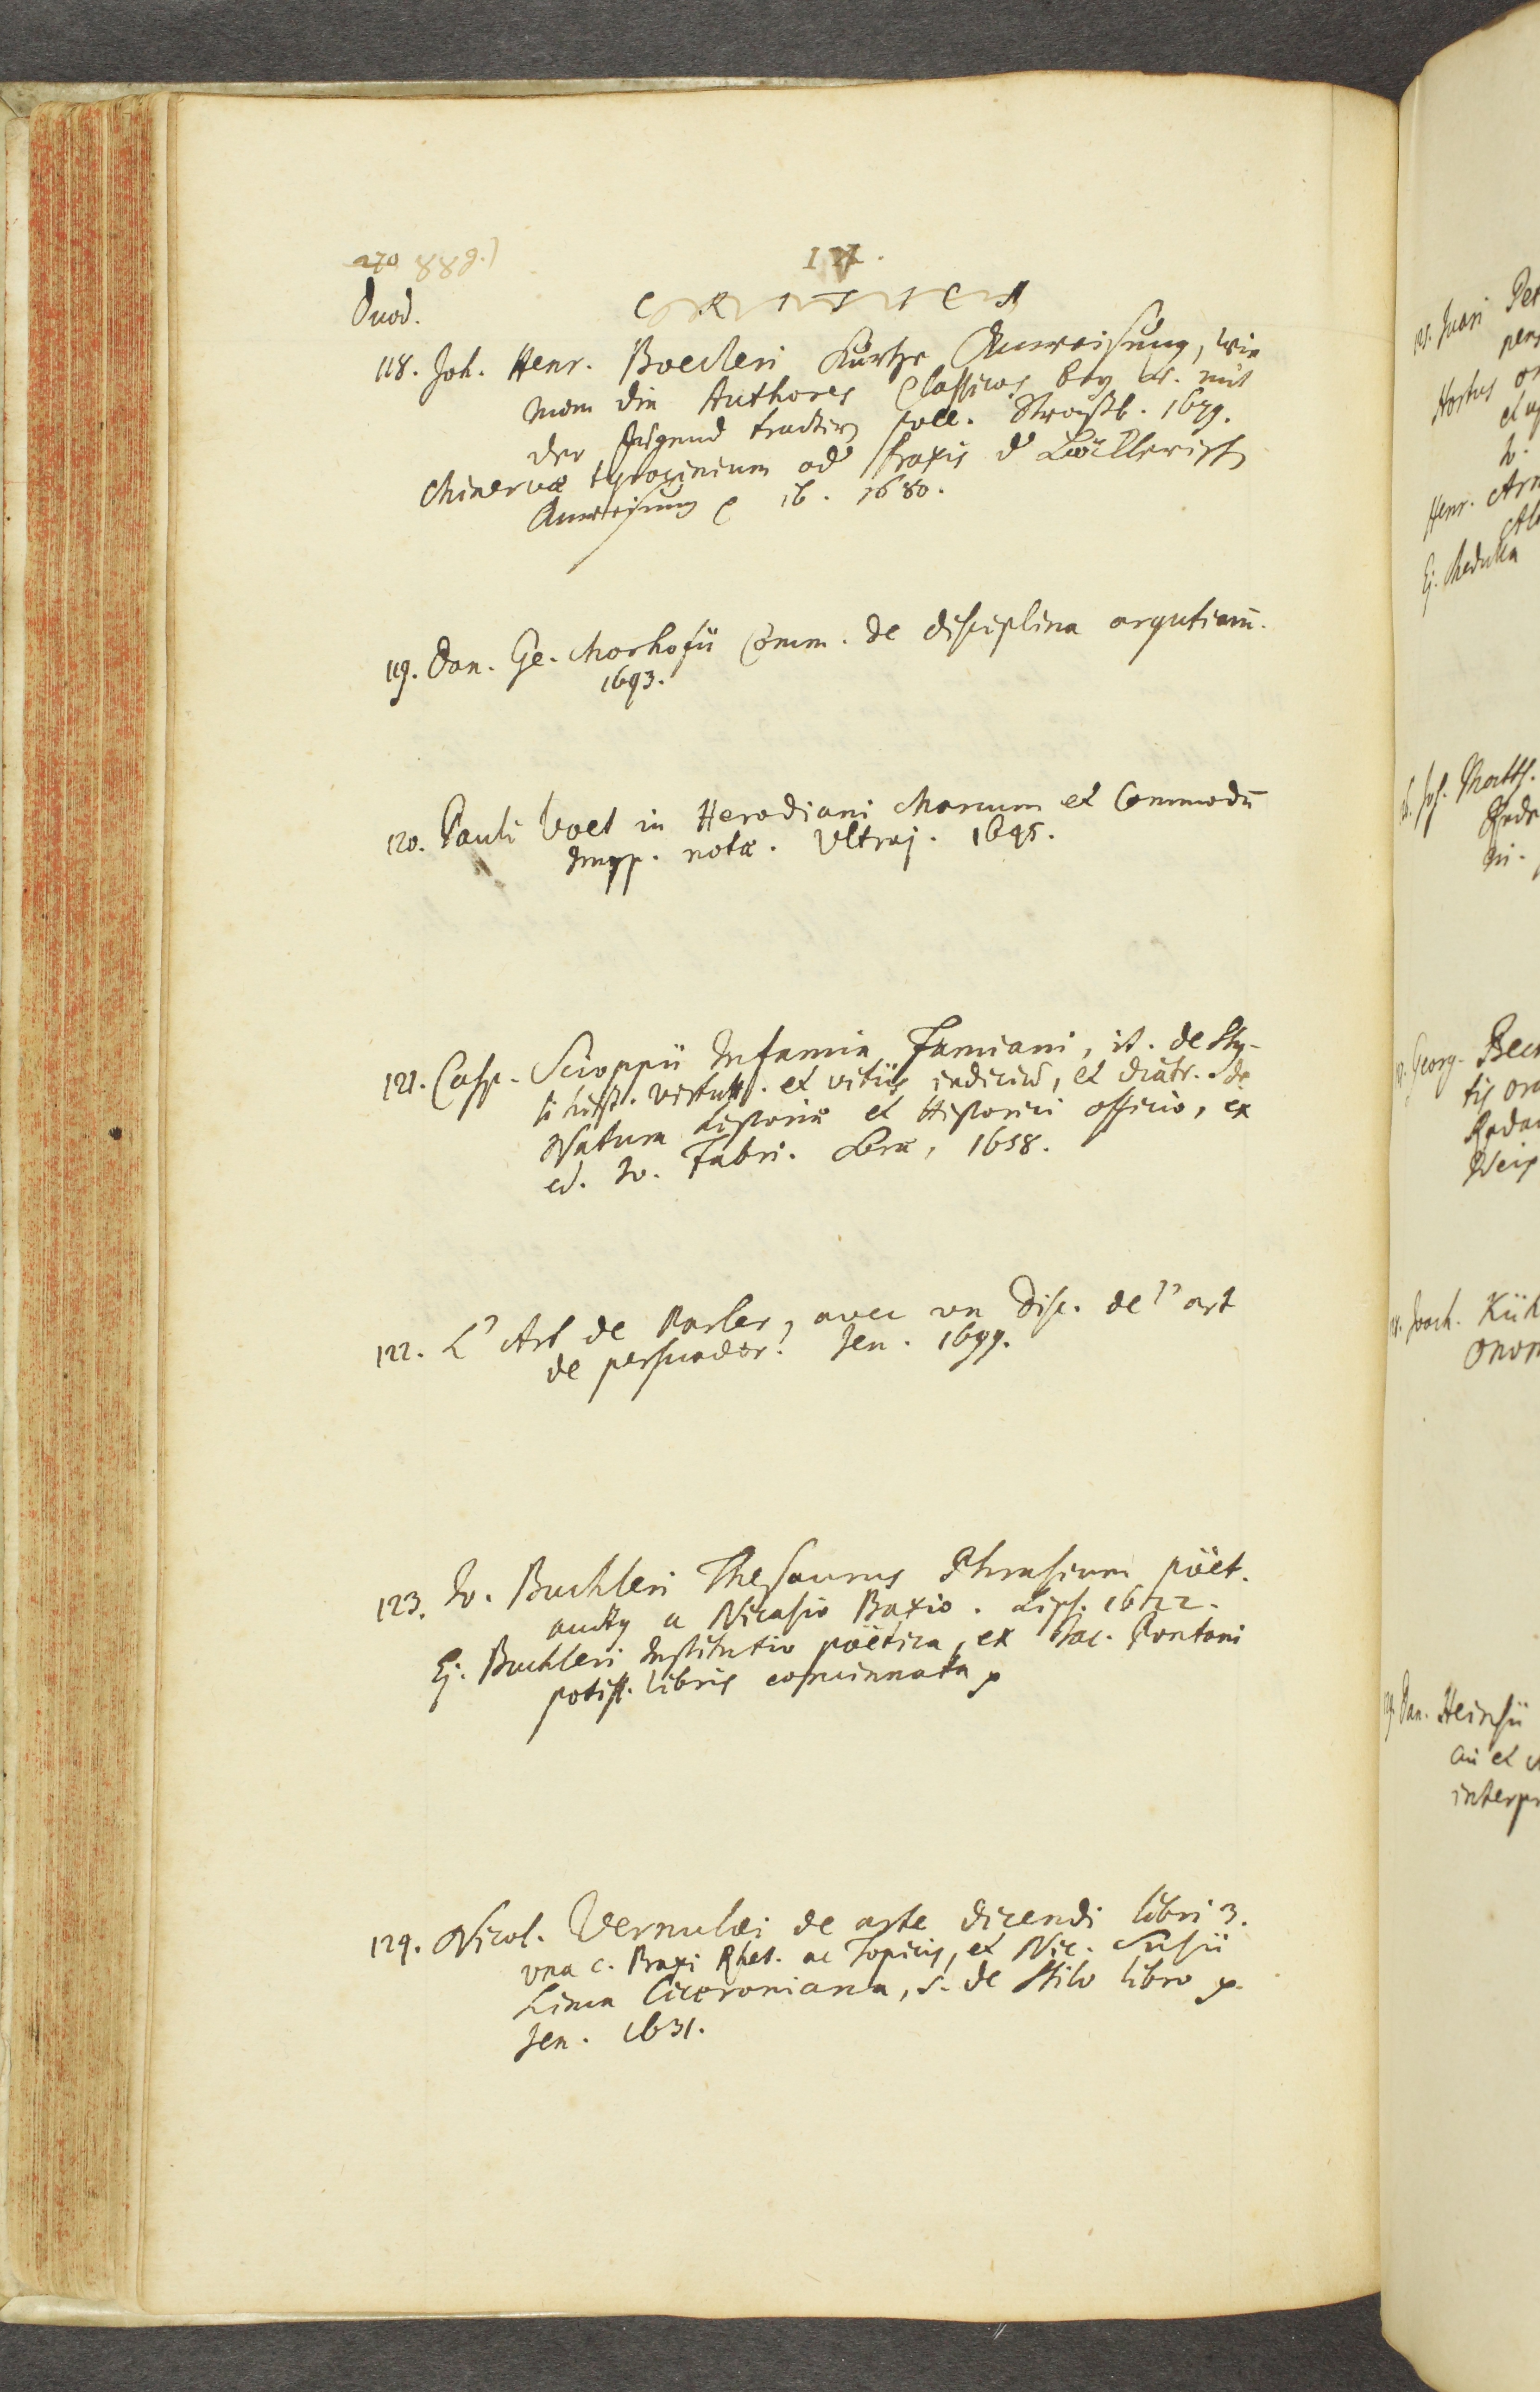 270 889.)
IX.
Duod. CRITICI
118. Joh. Henr. Boecleri Kurtze Anweisung, wie
man die Authores Classicos bey u. mit
der Jugend tractiren soll. Straßb. 1679.
Minervæ tyrocinium od Praxis d Böcklerisch
Anweisung ib. 1680.
119. Dan. Ge. Morhofii Comm. de disciplina argutiarū.
1693.
120. Pauli Voet in Herodiani Marcum et Commodū
Impp. notæ. Vltraj. 1695.
121. Casp. Scioppii Infamia Famiani, it. de Sty-
li hist. virtutt. et vitiis iudiciū, et diatr. de
Natura historiæ et Historici officio, ex
ed. Jo. Fabri. Soræ, 1658.
122. L'Art de Parler, avec un Disc. de l'art
de persuader. Jen. 1699.
123. Jo. Buchleri Thesaurus Phrasium poët.
auctus a Nicasio Baxio. Lips. 1622.
Ej. Buchleri Institutio poëtica, ex Jac. Pontani
potiss. libris concinnata
124. Nicol. Vernulæi de arte dicendi libri 3.
vna c. Praxi Rhet. ac Topicis, et Nic. Susii
Lima Ciceroniana, s. de Stilo libro
Jen. 1631.
Hortus
Henr.
Ej. Medulla
Matth.
Georg.
Joach. Küh
Dan. Heinsii
interpr